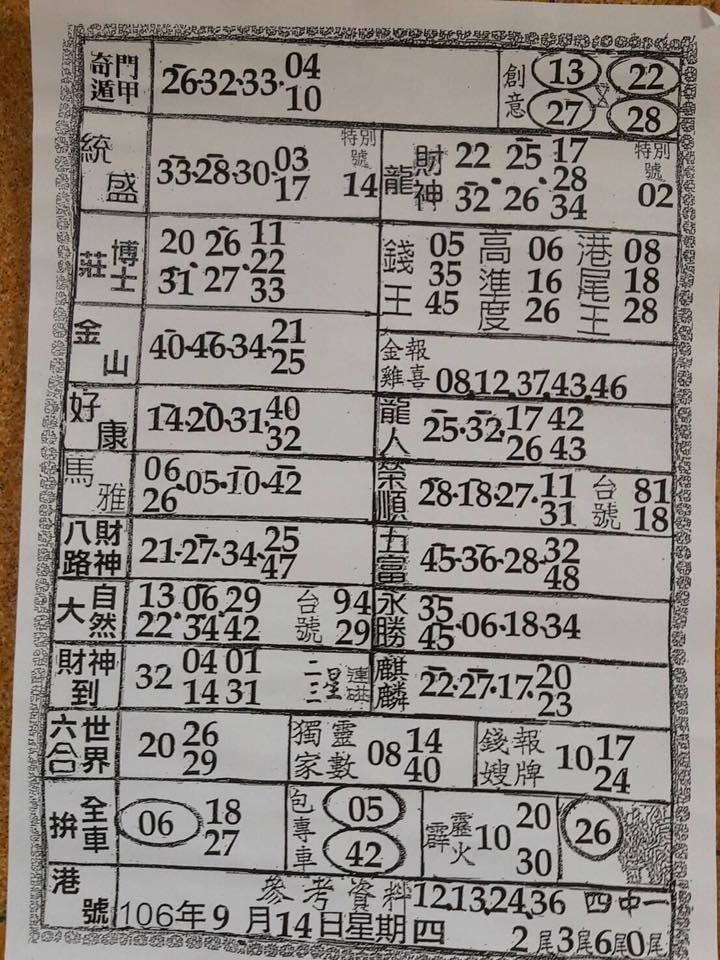 奇門遁甲 26·32·33· 04 10 創意 13 22 27 28
統盛 33·28·30· 03 17 特別號 14
龍財神 22 25 17 28 32 26 34 特別號 02
莊博士 20 26 11 22 31 27 33
錢王 05 35 45 高準度 06 16 26 港尾王 08 18 28
金山 40·46·34· 21 25
金雞報喜 08.12.37.43.46
好康 14·20·31· 40 32
龍人 25·32· 17 42 26 43
馬雅 06 26 ·05·10·42
榮順 28·18·27· 11 31 台號 81 18
八路財神 21·27·34· 25 47
五富 45·36·28· 32 48
大自然 13 06 29 22 34 42 台號 94 29
永勝 35 45 ·06·18·34
財神到 32 04 01 14 31 二三星連碰
麒麟 22·27·17· 20 23
六合世界 20 26 29
獨家靈數 08 14 40
錢嫂報牌 10 17 24
拚全車 06 18 27
包專車 05 42
霹靂火 10 20 30
26
港號 參考資料 12.13.24.36 四中一
106年9月14日星期四 2尾3尾6尾0尾